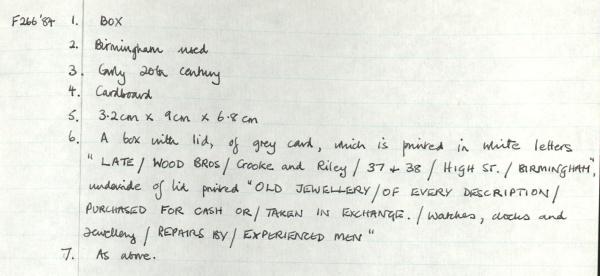 F266'84 1. BOX
2. Birmingham used
3. Early 20th century
4. Cardboard
5. 3.2cm x 9cm x 6.8cm
6. A box with lid, of grey card, which is printed in white letters
"LATE / WOOD BROS / Crooke and Riley / 37 + 38 / HIGH ST. / BIRMINGHAM",
underside of lid printed "OLD JEWELLERY / OF EVERY DESCRIPTION /
PURCHASED FOR CASH OR / TAKEN IN EXCHANGE. / Watches, clocks and
Jewellery / REPAIRS BY / EXPERIENCED MEN"
7. As above.